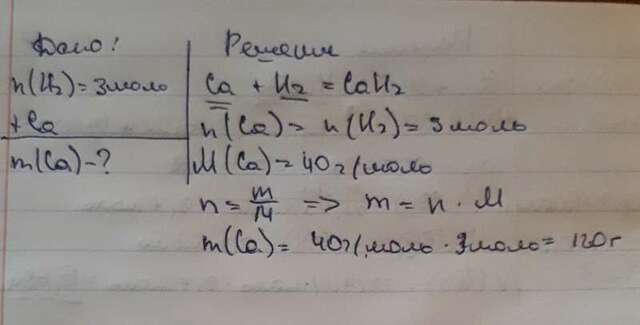 Дано:
n(H₂)=3моль
+Ca
m(Ca)-?
Решение
Ca + H₂ = CaH₂
n(Ca)= n(H₂)=3моль
M(Ca)=40г/моль
n = m/M => m = n · M
m(Ca)= 40г/моль · 3моль= 120г